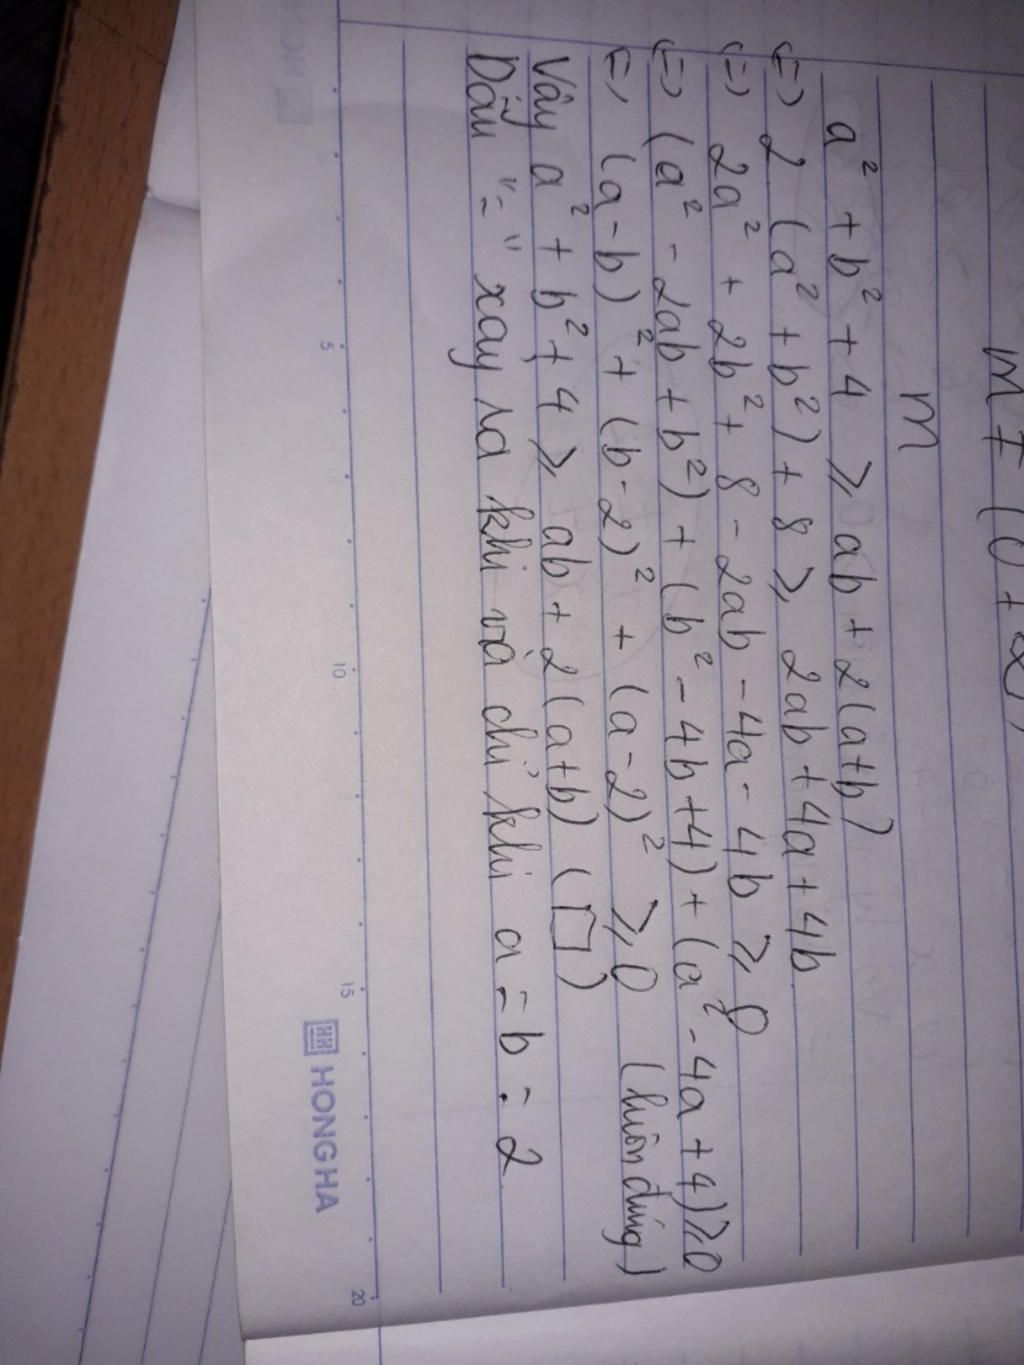 m ≠ (0 + 2)
m
a² + b² + 4 ⩾ ab + 2(a+b)
(=) 2 (a² + b²) + 8 ⩾ 2ab + 4a + 4b
(=) 2a² + 2b² + 8 - 2ab - 4a - 4b ⩾ 0
(=) (a² - 2ab + b²) + (b² - 4b + 4) + (a² - 4a + 4) ⩾ 0
(=) (a-b)² + (b-2)² + (a-2)² ⩾ 0 (luôn đúng)
Vậy a² + b² + 4 ⩾ ab + 2(a+b) (□)
Dấu "=" xảy ra khi và chỉ khi a = b = 2
5 10 15 20
HH HONG HA